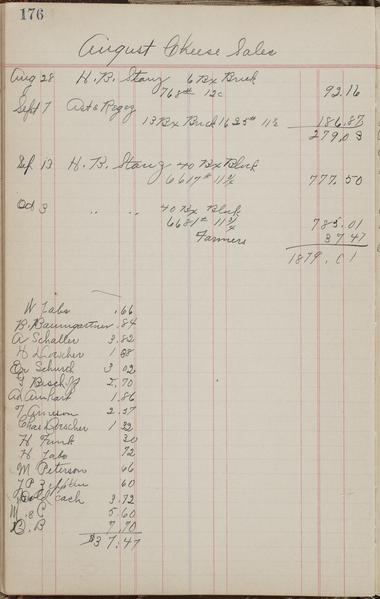 176
August Cheese Sales
Aug 28 H. B. Stanz 6 Bx Brick
768# 12c 92.16
Sept 7 Art & Roger
13 Bx Brick 1625# 11½ 186.87
279.03
Sep 13 H. B. Stanz 40 Bx Block
6617# 11¾ 777.50
Oct 3 " " 40 Bx Block
6681# 11¾ 785.01
Farmers 37.47
1879.01
W Zabs .66
B. Baumgartner .84
A Schaller 3.82
H Dorscher 1.88
Schurch 3 02
2,70
Ad Amhart 1.86
Arneson 2.57
Chas Dorscher 1 32
H Funk 30
H Zabs 72
M Peterson 66
J P 60
cash 3.72
M & C 5.60
B. B 7.70
$37.47